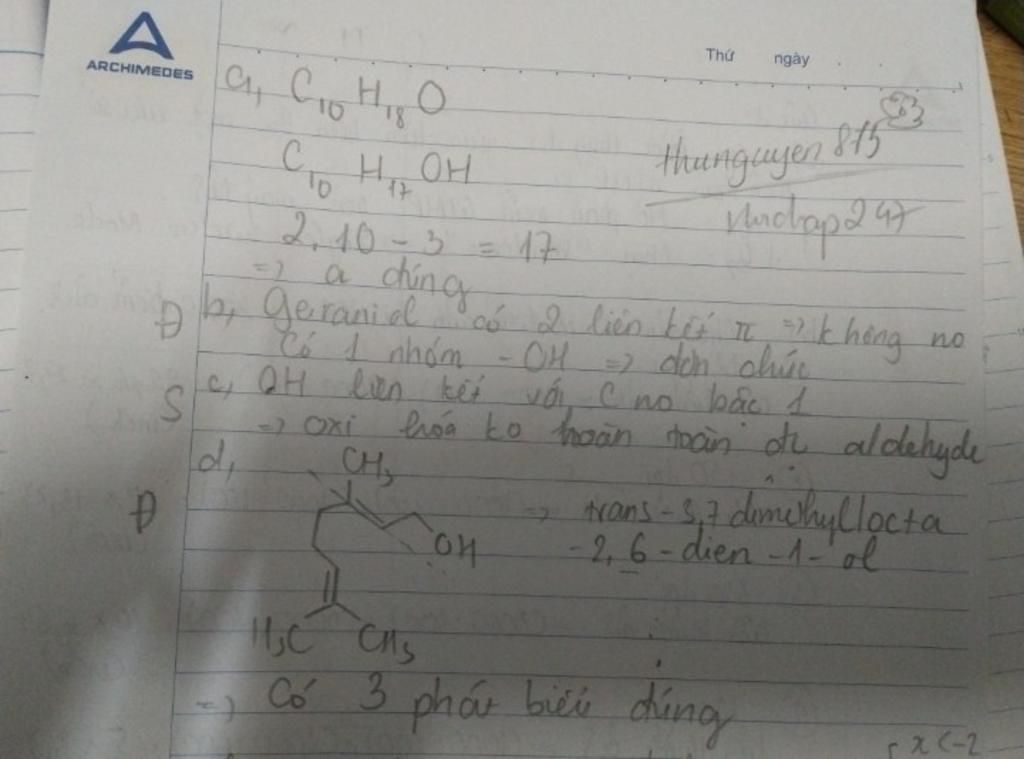 ARCHIMEDES
Thứ ngày
a, C10 H18 O
C10 H17 OH
thunguyen 815
2.10 - 3 = 17
=> a đúng
Đ b, Geraniol có 2 liên kết π => không no
Có 1 nhóm -OH => đơn chức
S c, OH liên kết với C no bậc 1
=> oxi hóa ko hoàn toàn đc aldehyde
d,
CH3
Đ
OH
=> trans-3,7 dimethyl locta
-2,6-dien-1-ol
H3C CH3
=> Có 3 phát biểu đúng
x < -2